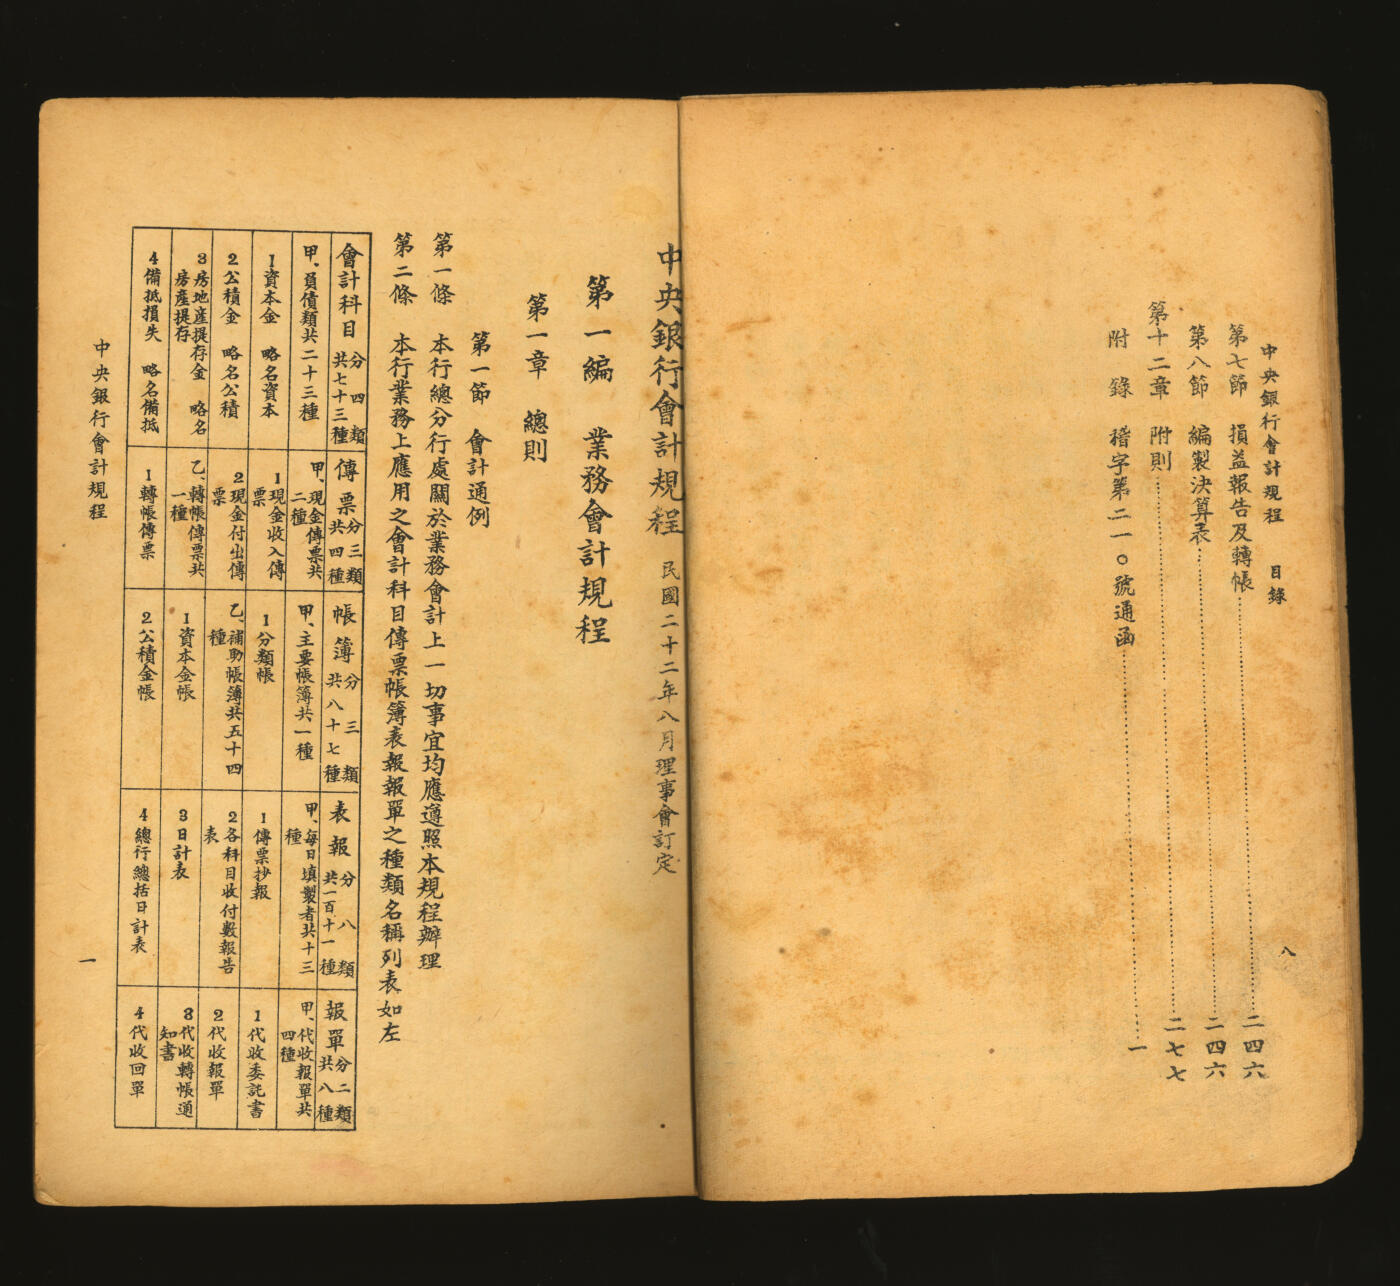 中央銀行會計規程　目錄
八
第七節　損益報告及轉帳……二四六
第八節　編製決算表……二四六
第十二章　附則……二七七
附　錄　稽字第二一〇號通函……一
中央銀行會計規程　民國二十二年八月理事會訂定
第一編　業務會計規程
第一章　總則
第一節　會計通例
第一條　本行總分行處關於業務會計上一切事宜均應遵照本規程辦理
第二條　本行業務上應用之會計科目傳票帳簿表報報單之種類名稱列表如左
會計科目　分四類共七十三種
甲、負債類共二十三種
1資本金　略名資本
2公積金　略名公積
3房地產提存金　略名房產提存
4備抵損失　略名備抵
傳票　分三類共四種
甲、現金傳票共二種
1現金收入傳票
2現金付出傳票
乙、轉帳傳票共一種
1轉帳傳票
帳簿　分三類共八十七種
甲、主要帳簿共一種
1分類帳
乙、補助帳簿共五十四種
1資本金帳
2公積金帳
表報　分八類共一百十一種
甲、每日填製者共十三種
1傳票抄報
2各科目收付數報告表
3日計表
4總行總括日計表
報單　分二類共八種
甲、代收報單共四種
1代收委託書
2代收報單
3代收轉帳通知書
4代收回單
中央銀行會計規程
一